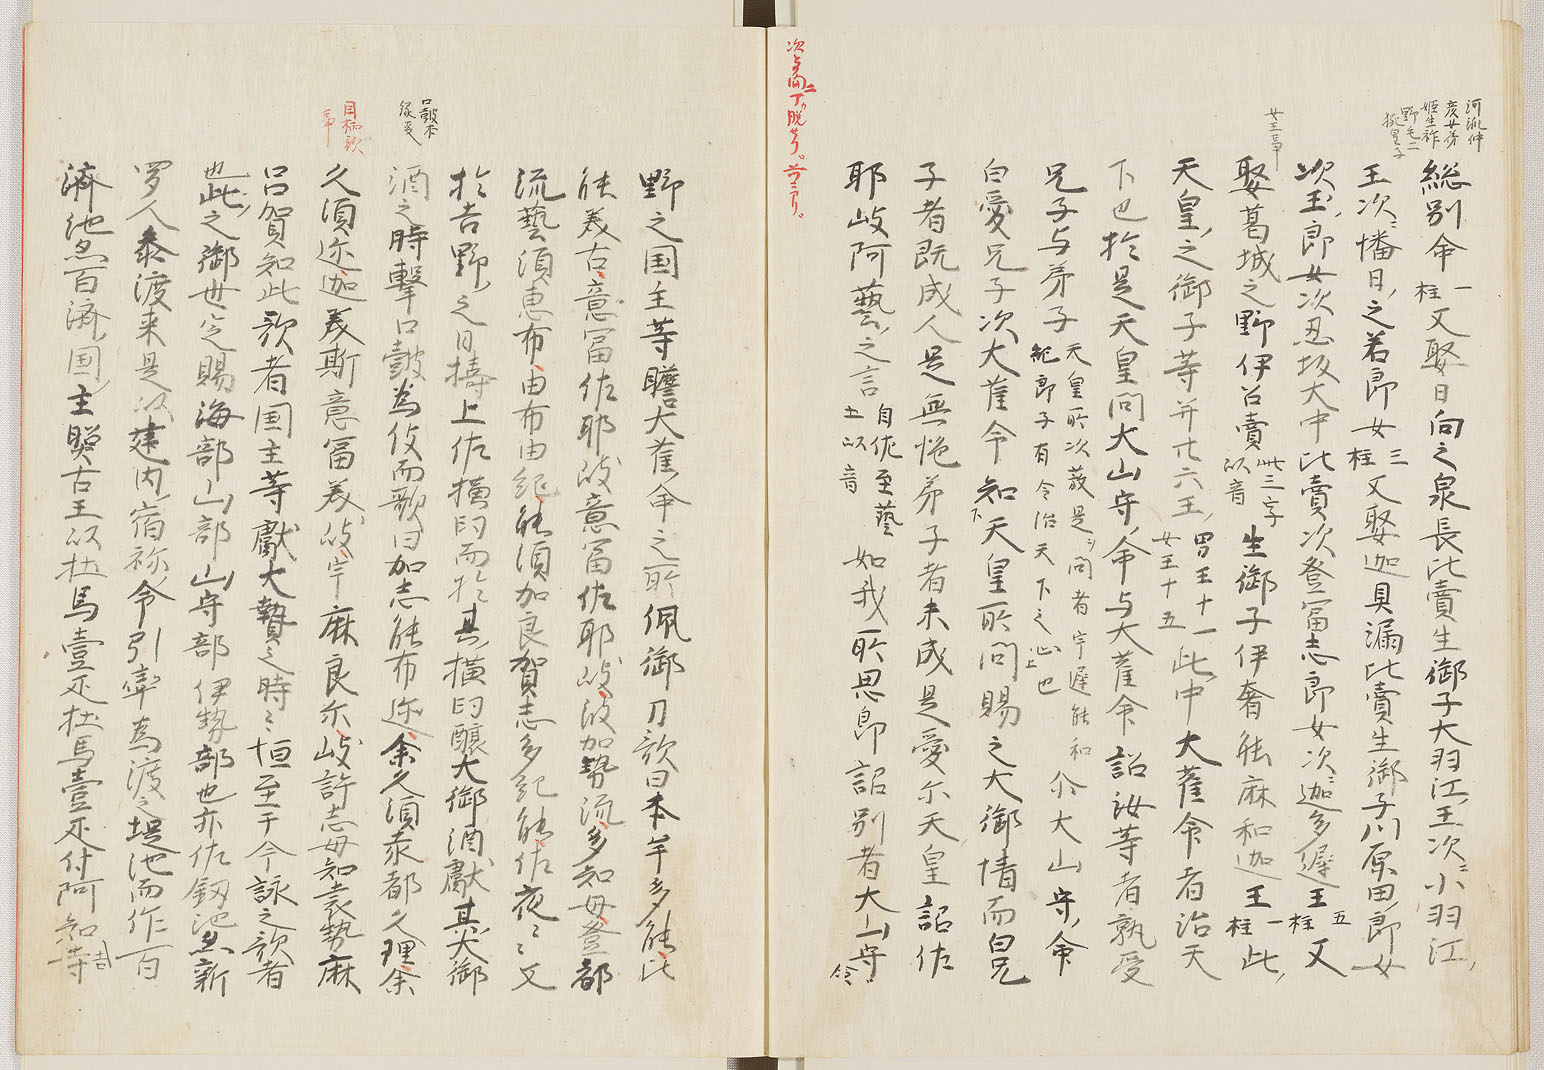 河派仲
彦女弟
姫生祚
野毛二
挑皇子
総別命一柱又娶日向之泉長比賣生御子大羽江王次ミ小羽江
王次ミ幡日之若郎女三柱又娶迦具漏比賣生御子川原田郎女
次玉郎女次忍坂大中比賣次登富志郎女次迦多遅王五柱又
女王事
娶葛城之野伊呂賣此三字以音生御子伊奢能麻和迦王一柱此
天皇之御子等并廿六王男王十一女王十五此中大雀命者治天
下也於是天皇問大山守命与大雀命詔汝等者孰愛
兄子与弟子天皇所次発是ミ問者宇遅能和紀郎子有令治天下之心上也尒大山守命
白愛兄子次大雀命知下天皇所問賜之大御情而白兄
子者既成人是無悒弟子者未成是愛尓天皇詔佐
耶岐阿藝之言自佐至藝五以音如我所思即詔別者大山守
命
次ノ間ニ丁カ脱セリ。
野之国主等瞻大雀命之所佩御刀歌曰本牟多能比
能美古意富佐耶岐意富佐耶岐波加勢流多知母登都
流藝須恵布由布由紀能須加良賀志多紀能佐夜ミ又
於吉野之日擣上佐横臼而於其横臼醸大御酒獻其大御
口皷不
縁支
酒之時撃口皷為伎而歌曰加志能布迩余久須袁都久理余
目板歌
事
久須迩迦美斯意富美岐宇麻良尓岐許志母知袁勢麻
呂賀知此歌者国主等獻大贄之時ミ恒至于今詠之歌者
也此之御世定賜海部山部山守部伊勢部也亦作釼池亦新
羅人参渡来是以建内宿祢命引率為渡之堤池而作百
済池亦百済国主照古王以牡馬壹疋牡馬壹疋付阿知吉等